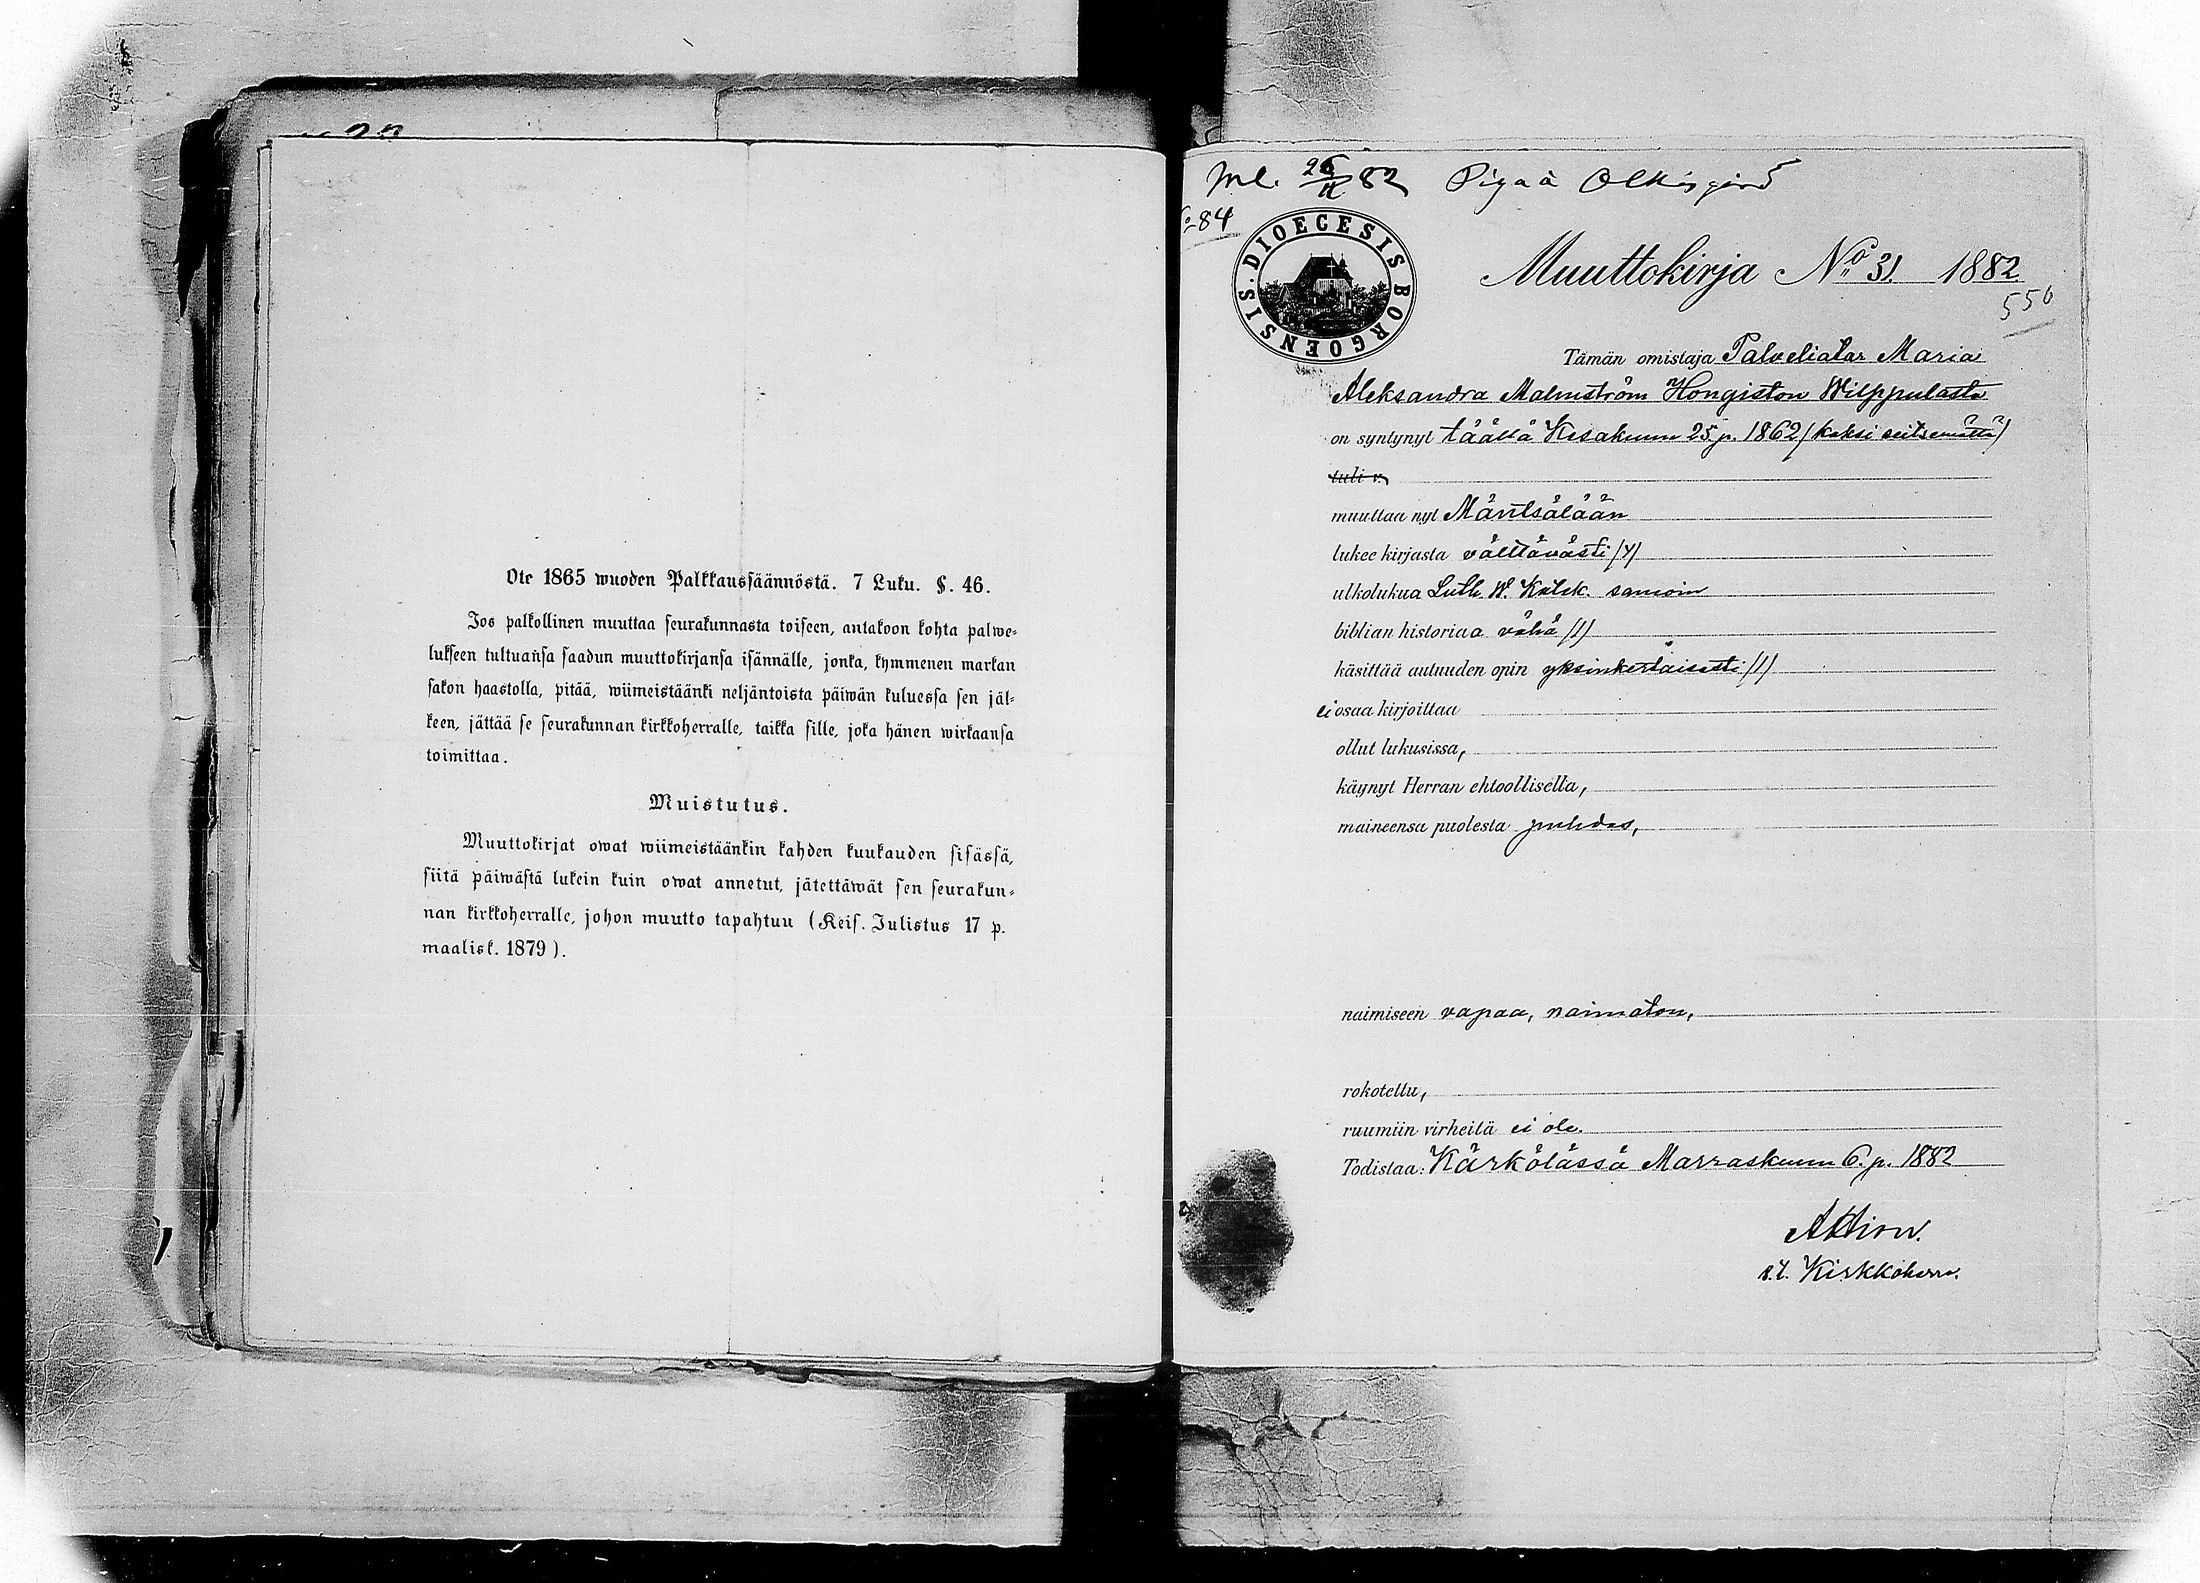 Ote 1865 wuoden Palkkaussäännöstä. 7 Luku. §. 46.
Jos palkollinen muuttaa seurakunnasta toiseen, antakoon kohta palwe-
lukseen tultuansa saadun muuttokirjansa isännälle, jonka, kymmenen markan
sakon haastolla, pitää, wiimeistäänki neljäntoista päiwän kuluessa sen jäl-
keen, jättää se seurakunnan kirkkoherralle, taikka sille, joka hänen wirkaansa
toimittaa.
Muistutus.
Muuttokirjat owat wiimeistäänkin kahden kuukauden sisässä,
siitä päiwästä lukein kuin owat annetut, jätettäwät sen seurakun-
nan kirkkoherralle, johon muutto tapahtuu (Keis. Julistus 17 p.
maalisk. 1879).
Ml. 26/11 82 Piga à
84
DIOECESIS BORGOENSIS.
Muuttokirja No 31. 1882
550
Tämän omistaja Palveliatar Maria
Aleksandra Malmström Hongiston Wilppulasta
on syntynyt täällä Kesäkuun 25 p. 1862 (kaksi seitsemättä)
tuli v.
muuttaa nyt Mäntsälään
lukee kirjasta välttävästi /y/
ulkolukua Luth. W. Katek. samoin
biblian historiaa vähä /1/
käsittää autuuden opin yksinkertaisesti /1/
ei osaa kirjoittaa
ollut lukusissa,
käynyt Herran ehtoollisella,
maineensa puolesta puhdas,
naimiseen vapaa, naimaton,
rokotettu,
ruumiin virheitä ei ole.
Todistaa: Kärkölässä Marraskuun 6. p. 1882
v.t. Kirkkoherra.